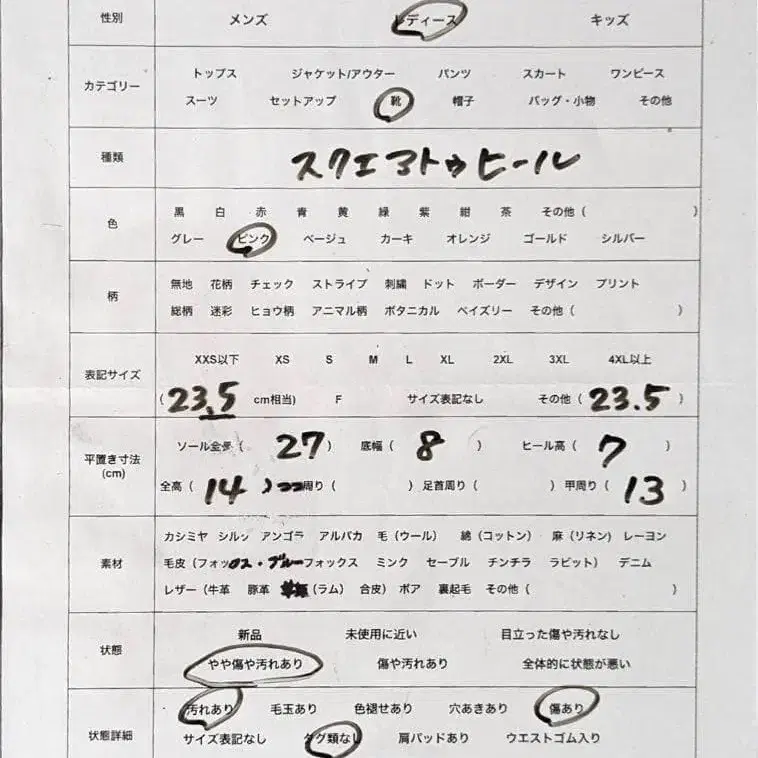 性別 メンズ レディース キッズ
カテゴリー
トップス ジャケット/アウター パンツ スカート ワンピース
スーツ セットアップ 靴 帽子 バッグ・小物 その他
種類 スクエアトゥヒール
色
黒 白 赤 青 黄 緑 紫 紺 茶 その他( )
グレー ピンク ベージュ カーキ オレンジ ゴールド シルバー
柄
無地 花柄 チェック ストライプ 刺繍 ドット ボーダー デザイン プリント
総柄 迷彩 ヒョウ柄 アニマル柄 ボタニカル ペイズリー その他( )
表記サイズ
XXS以下 XS S M L XL 2XL 3XL 4XL以上
(23.5 cm相当) F サイズ表記なし その他(23.5)
平置き寸法
(cm)
ソール全長( 27 ) 底幅( 8 ) ヒール高( 7 )
全高( 14 ) ココ周り( ) 足首周り( ) 甲周り( 13 )
素材
カシミヤ シルク アンゴラ アルパカ 毛(ウール) 綿(コットン) 麻(リネン) レーヨン
毛皮(フォックス・ブルーフォックス ミンク セーブル チンチラ ラビット) デニム
レザー(牛革 豚革 (ラム) 合皮) ボア 裏起毛 その他( )
状態
新品 未使用に近い 目立った傷や汚れなし
やや傷や汚れあり 傷や汚れあり 全体的に状態が悪い
状態詳細
汚れあり 毛玉あり 色褪せあり 穴あきあり 傷あり
サイズ表記なし タグ類なし 肩パッドあり ウエストゴム入り